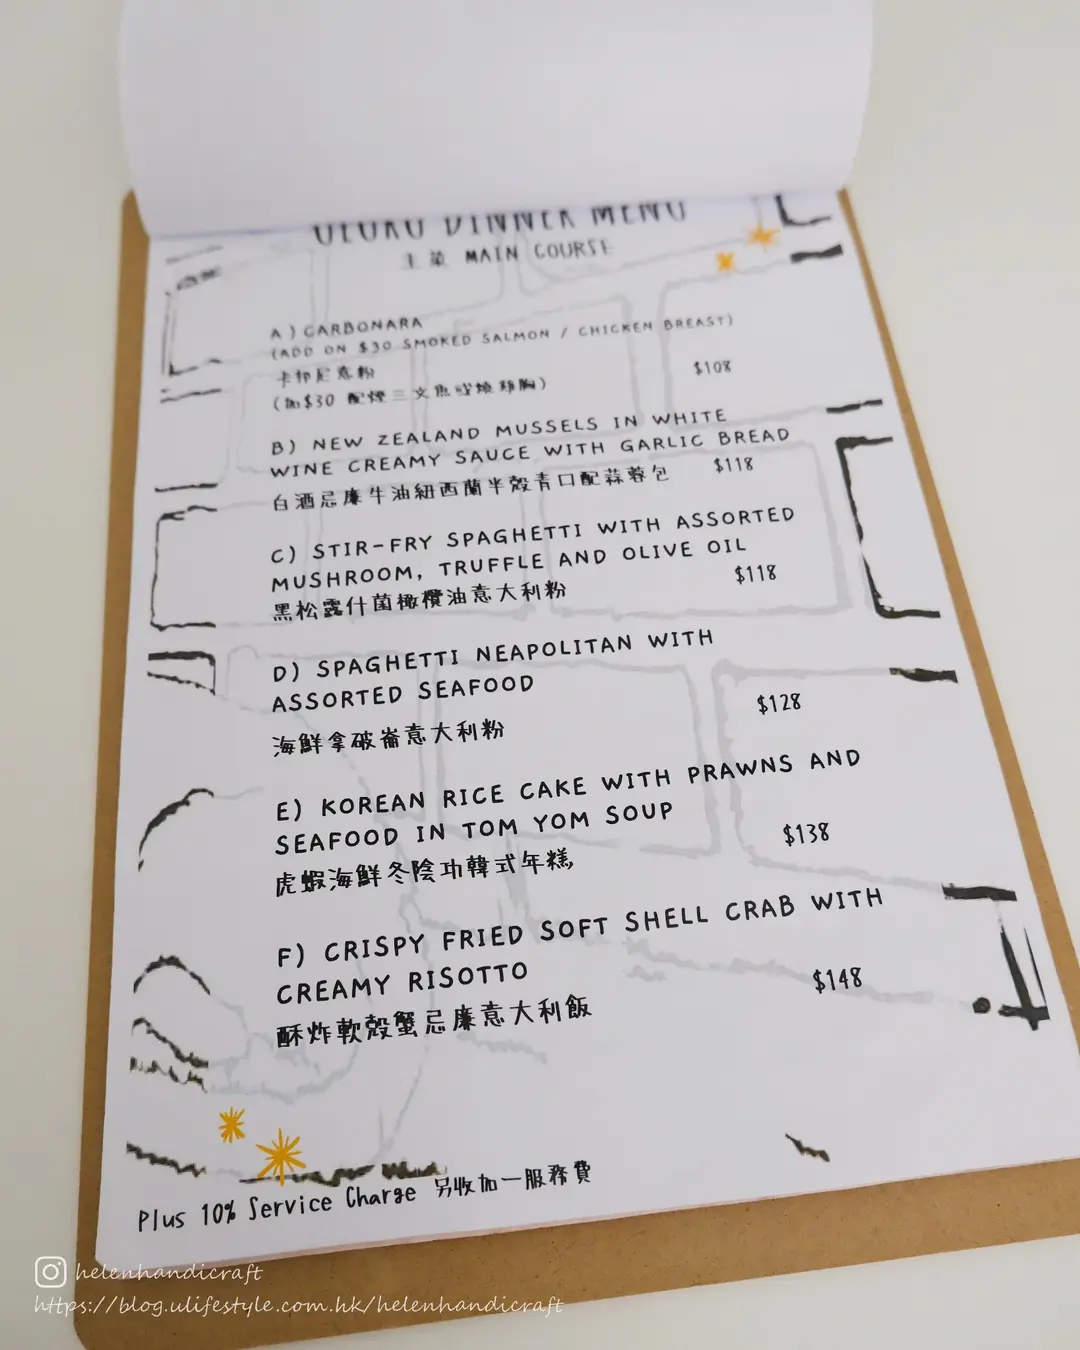 DINNER MENU
主菜 MAIN COURSE
A) CARBONARA
(ADD ON $30 SMOKED SALMON / CHICKEN BREAST)
卡邦尼意粉
$108
(加$30 配煙三文魚或燒雞胸)
B) NEW ZEALAND MUSSELS IN WHITE
WINE CREAMY SAUCE WITH GARLIC BREAD
白酒忌廉牛油紐西蘭半殼青口配蒜蓉包 $118
C) STIR-FRY SPAGHETTI WITH ASSORTED
MUSHROOM, TRUFFLE AND OLIVE OIL
黑松露什菌橄欖油意大利粉 $118
D) SPAGHETTI NEAPOLITAN WITH
ASSORTED SEAFOOD
海鮮拿破崙意大利粉 $128
E) KOREAN RICE CAKE WITH PRAWNS AND
SEAFOOD IN TOM YOM SOUP
虎蝦海鮮冬陰功韓式年糕 $138
F) CRISPY FRIED SOFT SHELL CRAB WITH
CREAMY RISOTTO
酥炸軟殼蟹忌廉意大利飯 $148
Plus 10% Service Charge 另收加一服務費
helenhandicraft
https://blog.ulifestyle.com.hk/helenhandicraft